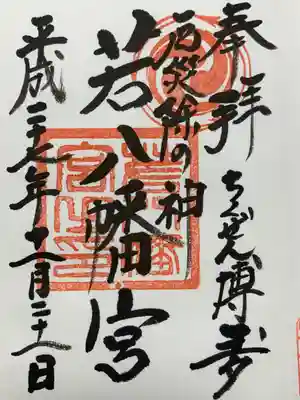 奉拝
ちくぜん博多
厄災除の神
若八幡宮
平成二十七年十一月二十一日